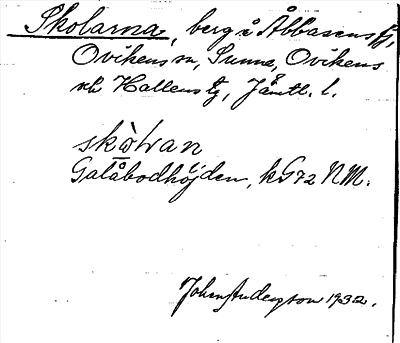 Skolarna, berg i Åbbåsens fj,
Ovikens sn, Sunne, Ovikens
och Hallens tg, Jämtl. l.
skòlvan
Gatåbodhöjden, k G 72 N M.
Johan Anderson 1932.